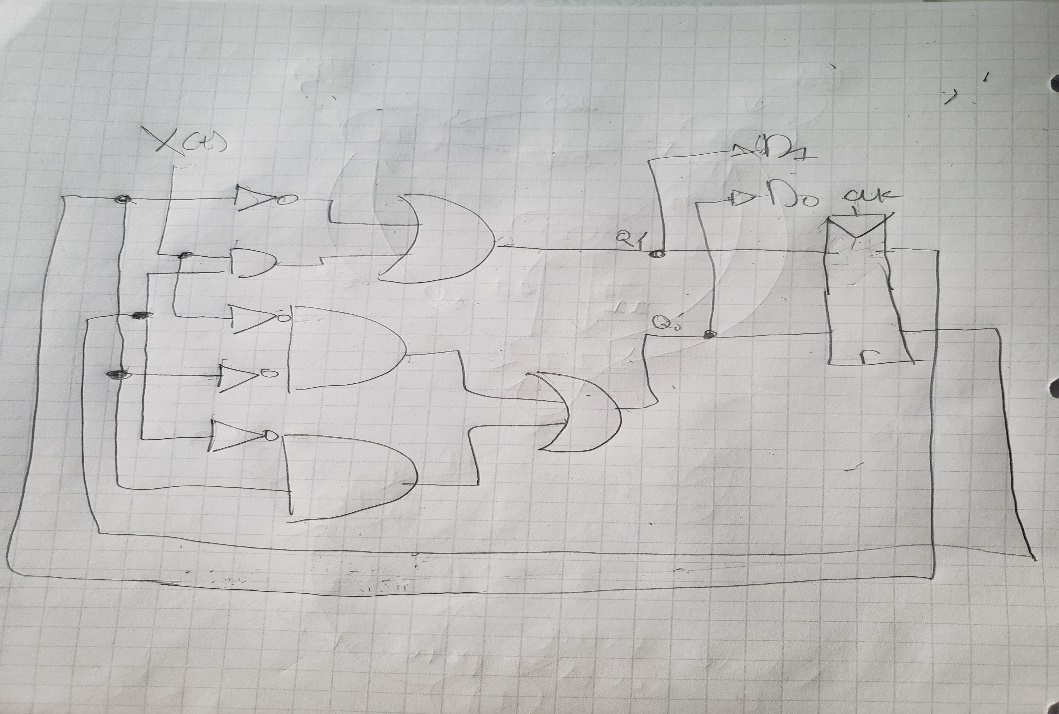 X(t)
D1
D0
clk
Q1
Q0
r